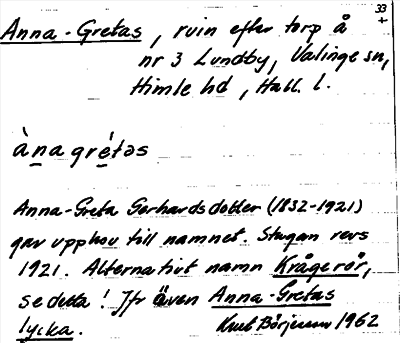 33
+
Anna-Gretas, ruin efter torp å
nr 3 Lundby, Valinge sn,
Himle hd, Hall. l.
ànagrétəs
Anna-Greta Gerhardsdotter (1832-1921)
gav upphov till namnet. Stugan revs
1921. Alternativt namn Krågerör,
se detta! Jfr även Anna-Gretas
lycka. Kurt Börjesson 1962